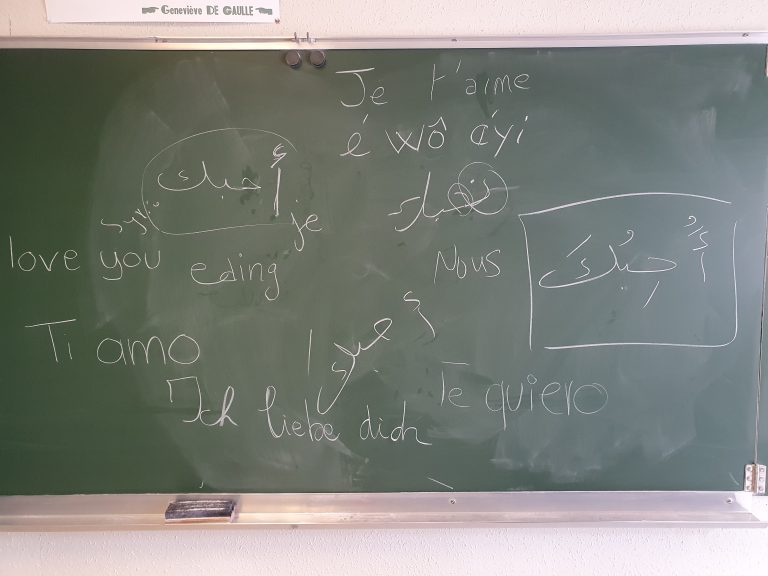 Geneviève DE GAULLE
Je t'aime
é wô éyi
أحبك
je
love you
eding
Nous
أُحِبُكَ
Ti amo
Te quiero
Ich liebe dich